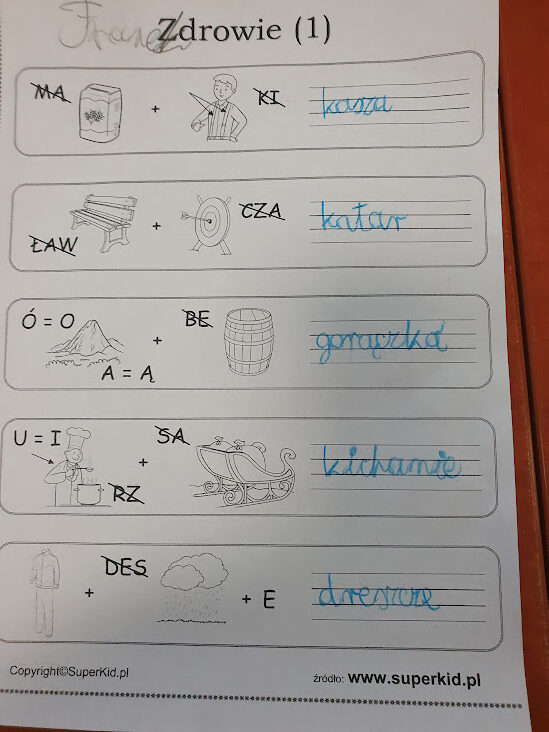 Franek
Zdrowie (1)
MA + KI kasza
ŁAW + CZA katar
Ó = O A = Ą + BE gorączka
U = I RZ + SA kichanie
+ DES + E dreszcze
Copyright©SuperKid.pl
źródło: www.superkid.pl